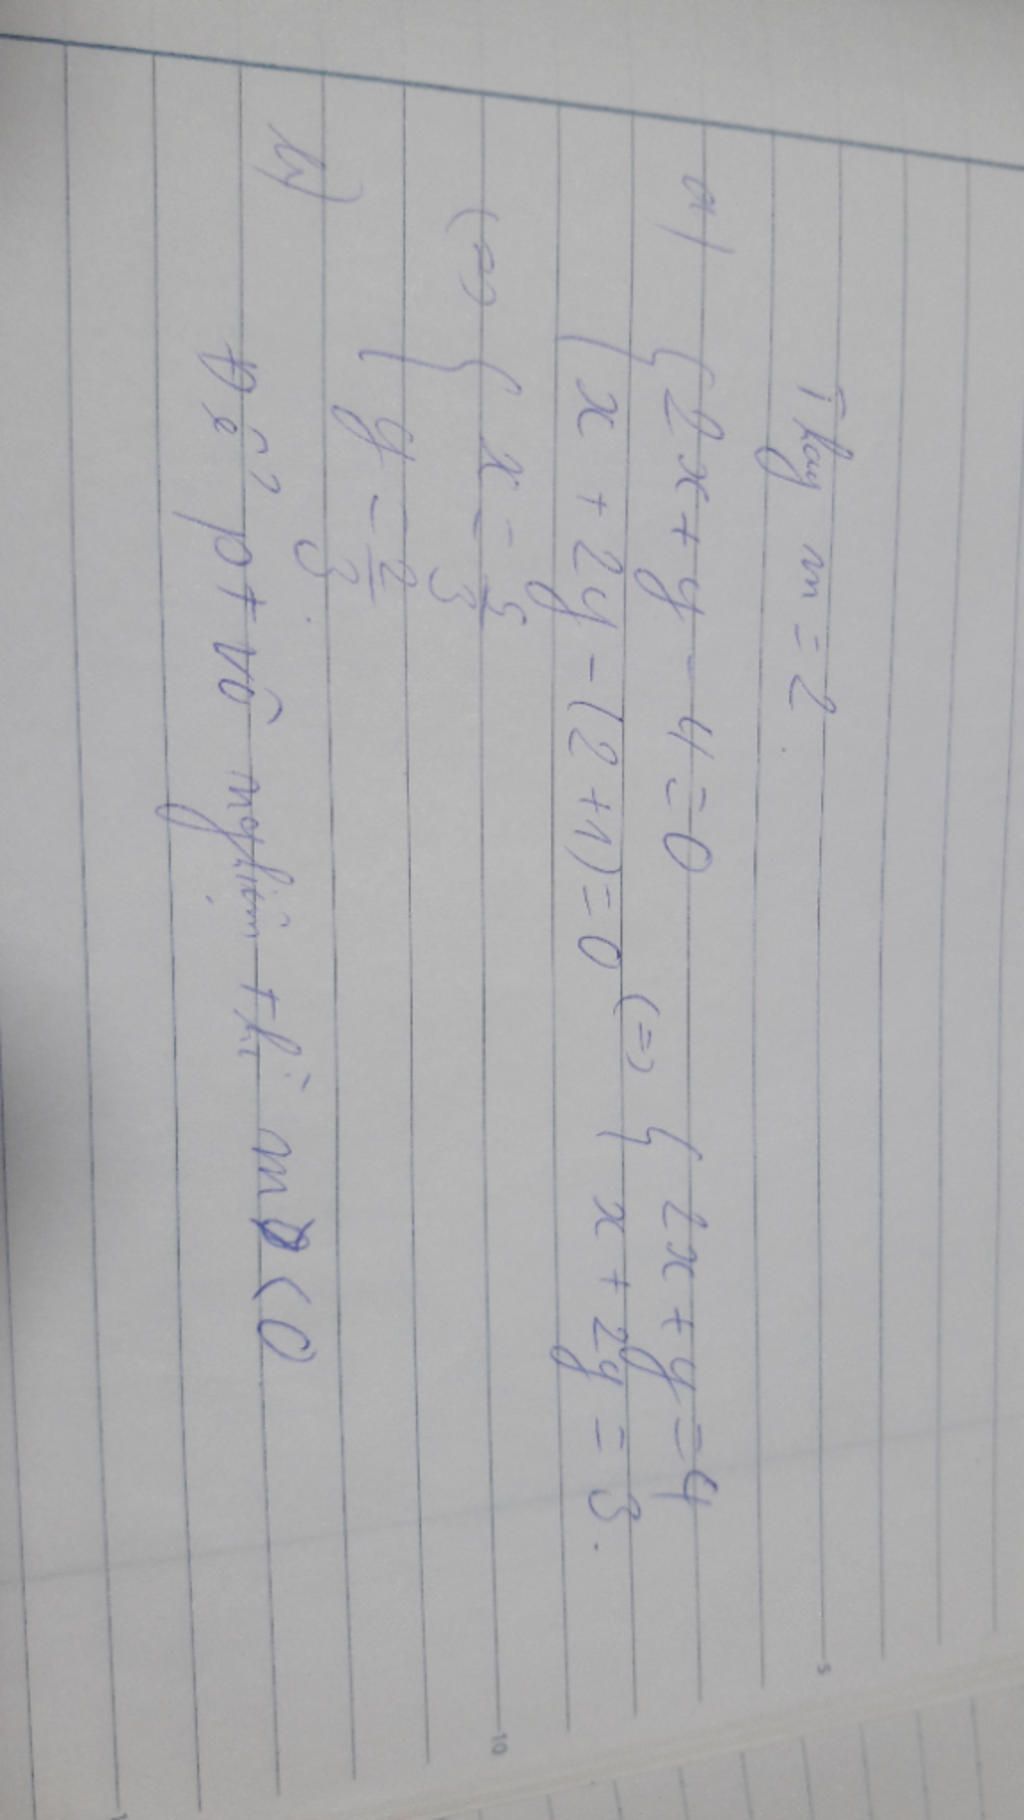 Thay m = 2.
a) { 2x + y - 4 = 0
{ x + 2y - (2 + 1) = 0 (=) { 2x + y = 4
{ x + 2y = 3.
(=) { x = 5/3
{ y = 2/3.
b)
Để pt vô nghiệm thì m < 0
5
10